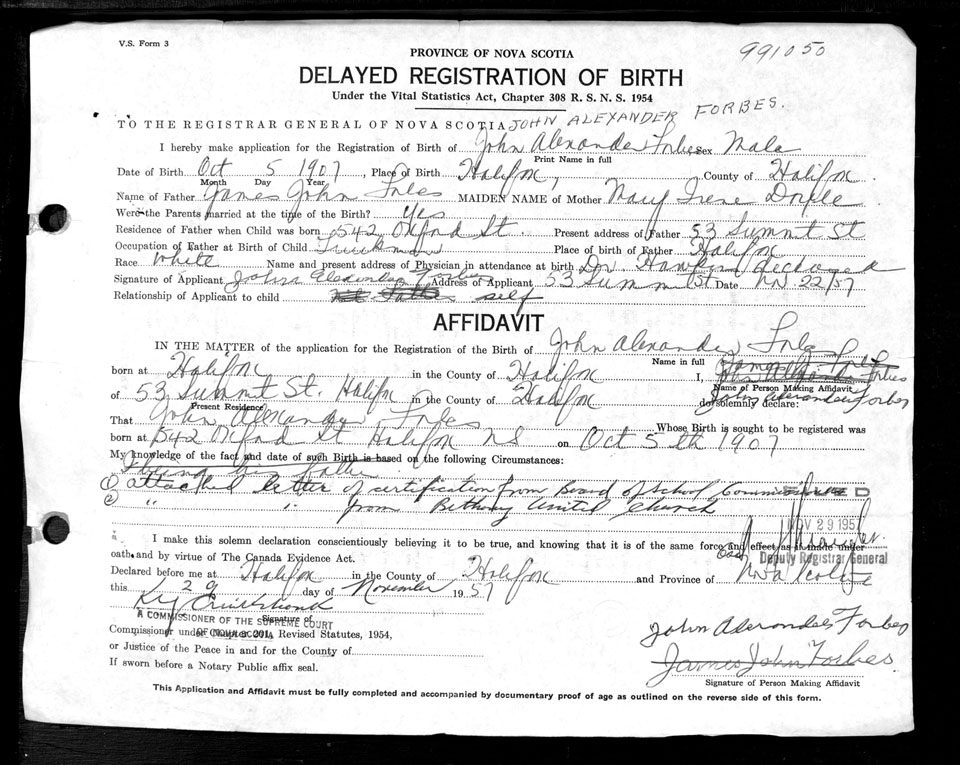 V.S. Form 3
991050
PROVINCE OF NOVA SCOTIA
DELAYED REGISTRATION OF BIRTH
Under the Vital Statistics Act, Chapter 308 R. S. N. S. 1954
JOHN ALEXANDER FORBES.
TO THE REGISTRAR GENERAL OF NOVA SCOTIA
I hereby make application for the Registration of Birth of John Alexander Forbes Sex Male
Print Name in full
Date of Birth Oct 5 1907, Place of Birth Halifax, County of Halifax
Month Day Year
Name of Father James John Forbes MAIDEN NAME of Mother Mary Irene Doyle
Were the Parents married at the time of the Birth? Yes
Residence of Father when Child was born 542 Oxford St Present address of Father 53 Summit St
Occupation of Father at Birth of Child Truckman Place of birth of Father Halifax
Race White Name and present address of Physician in attendance at birth Dr. deceased
Signature of Applicant John Alexander Forbes Address of Applicant 53 Summit St Date Nov 22/57
Relationship of Applicant to child self
AFFIDAVIT
IN THE MATTER of the application for the Registration of the Birth of John Alexander Forbes
Name in full
born at Halifax in the County of Halifax I, James John Forbes
Name of Person Making Affidavit
of 53 Summit St. Halifax in the County of Halifax John Alexander Forbes do solemnly declare:
Present Residence
That John Alexander Forbes Whose Birth is sought to be registered was
born at 542 Oxford St Halifax NS on Oct 5th 1907
My knowledge of the fact and date of such Birth is based on the following Circumstances:
I being his father
① attached letter of certification from Board of School Commissioners
② " " from Bethany United Church
FILED
NOV 29 1957
Deputy Registrar General
I make this solemn declaration conscientiously believing it to be true, and knowing that it is of the same force and effect as if made under
oath and by virtue of The Canada Evidence Act.
Declared before me at Halifax in the County of Halifax and Province of Nova Scotia
this 29 day of November 1957
Signature of
A COMMISSIONER OF THE SUPREME COURT
OF NOVA SCOTIA
Commissioner under Chapter 201, Revised Statutes, 1954,
or Justice of the Peace in and for the County of
If sworn before a Notary Public affix seal.
John Alexander Forbes
James John Forbes
Signature of Person Making Affidavit
This Application and Affidavit must be fully completed and accompanied by documentary proof of age as outlined on the reverse side of this form.